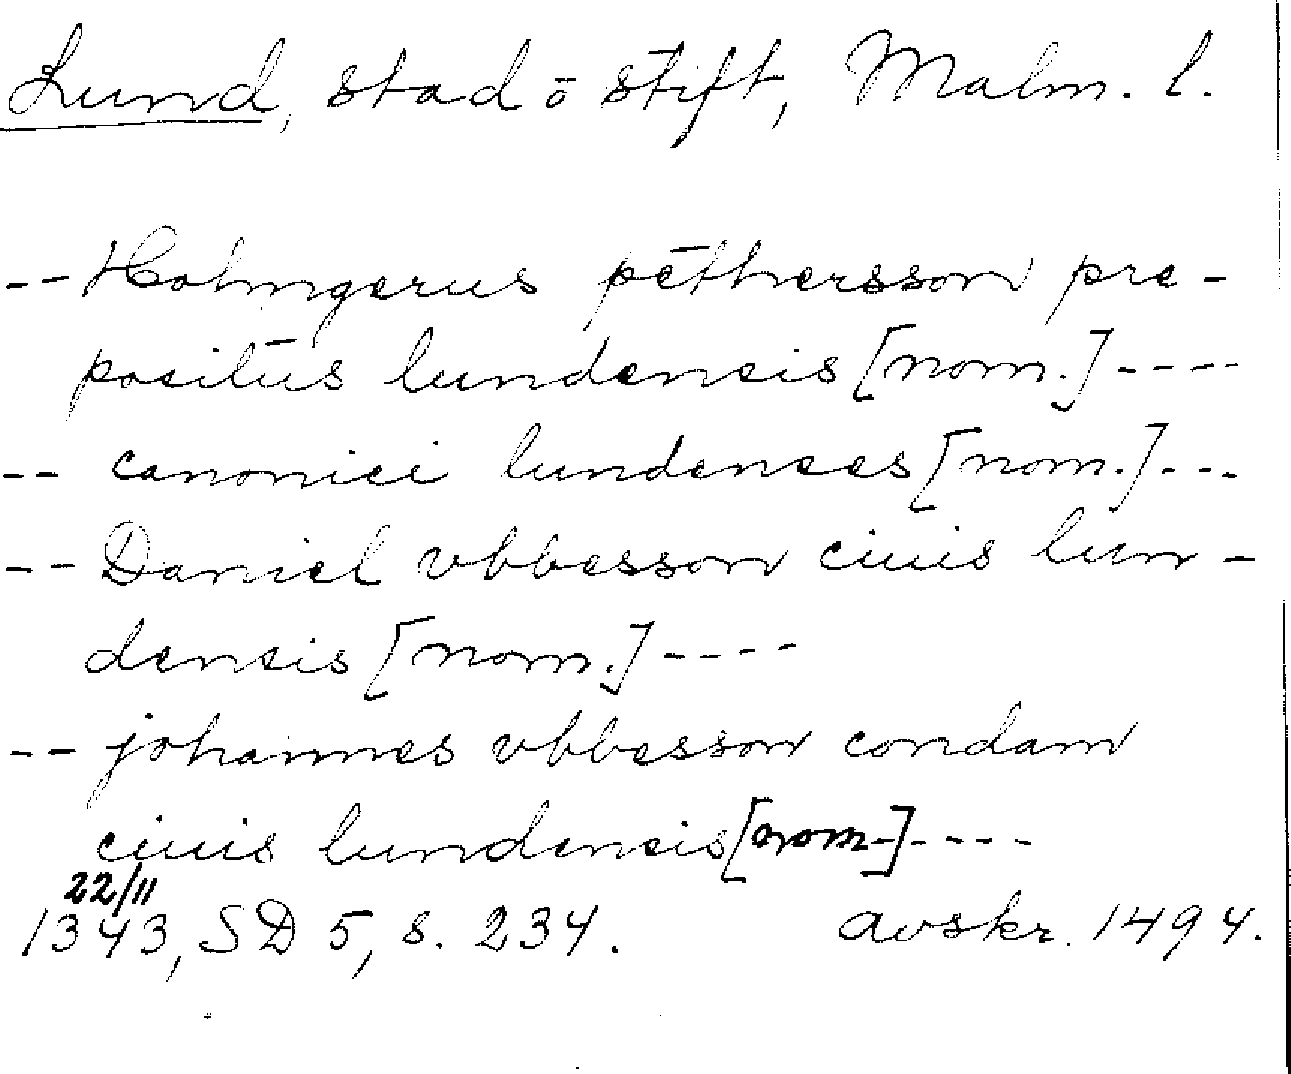 Lund, stad ö stift, Malm. l.
-- Holmgerus pēthersson pre-
positūs lundensis [nom.] ----
-- canonici lundenses [nom.] ---
-- Daniel vbbesson ciuis lun-
densis [nom.] ----
-- johannes vbbesson condam
ciuis lundensis [nom.] ----
22/11
1343, SD 5, s. 234. avskr. 1494.